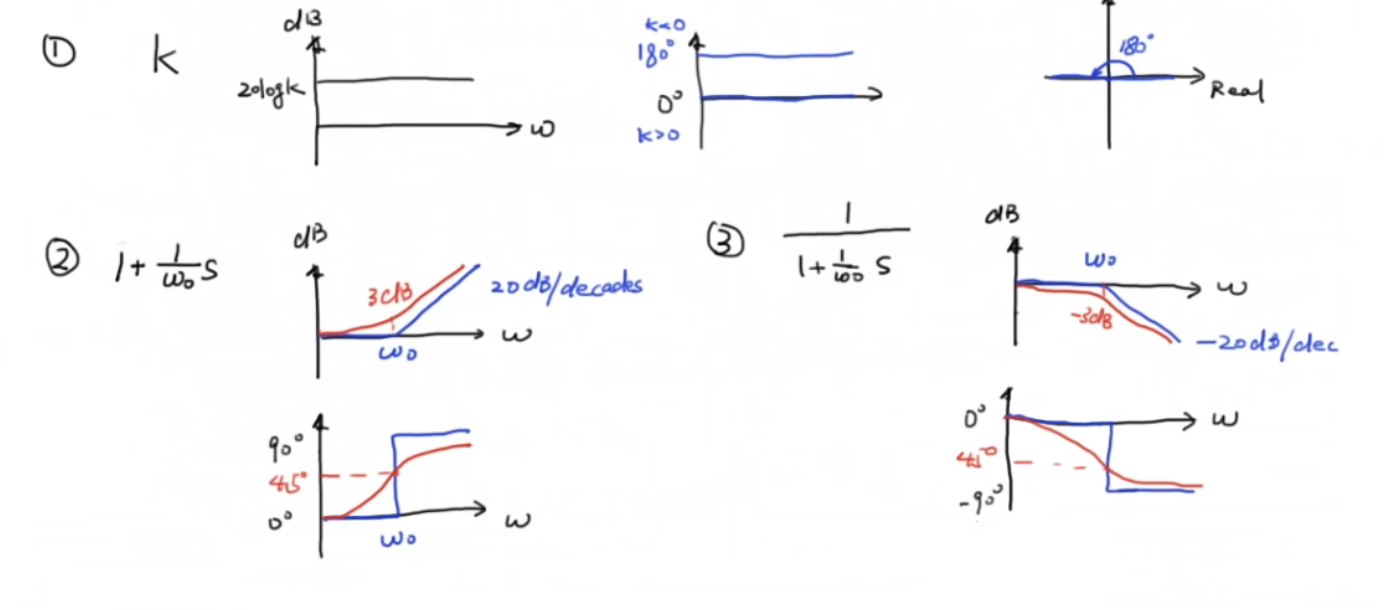 ① k
dB
20logk
ω
k<0
180°
0°
k>0
180°
Real
② 1+ 1/ω₀ s
dB
3dB
20dB/decades
ω
ω₀
90°
45°
0°
ω
ω₀
③ 1/(1+ 1/ω₀ s)
dB
ω₀
ω
-3dB
-20dB/dec
0°
ω
45°
-90°